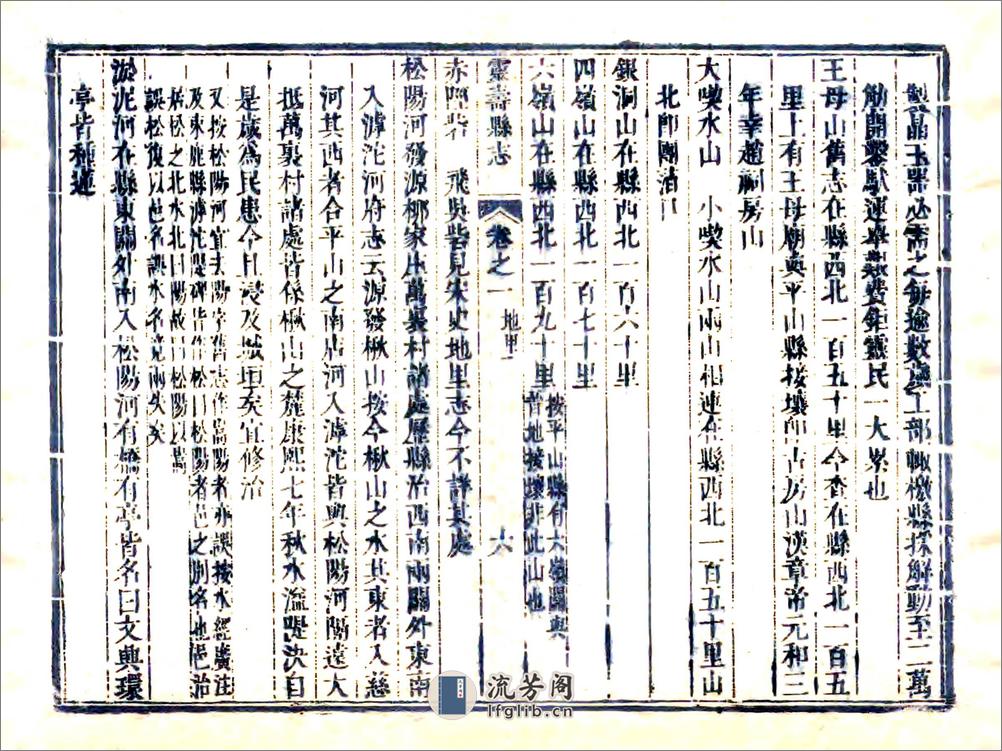 製晶玉器必需之每逾數歲工部輒檄縣採解動至二萬
觔開鑿馱運車艱費鉅靈民一大累也
王母山舊志在縣西北一百五十里今查在縣西北一百五
里上有王母廟與平山縣接壤卽古房山漢章帝元和三
年幸趙祠房山
大喫水山 小喫水山兩山相連在縣西北一百五十里山
北卽團泊口
銀洞山在縣西北一百六十里
四嶺山在縣西北一百七十里
六嶺山在縣西北一百九十里 按平山縣有六嶺關與
昔地接壤非此山也
靈壽縣志 卷之一 地里 六
赤陘砦 飛吳砦見宋史地里志今不詳其處
松陽河發源柳家庄萬裏村諸處歷縣治西南兩關外東南
入滹沱河府志云源發楸山按今楸山之水其東者入慈
河其西者合平山之南店河入滹沱皆與松陽河隔遠大
抵萬裏村諸處皆係楸山之麓康熙七年秋水溢堤決自
是歲為民患今且浸及城垣矣宜修治
又按松陽河宜去陽字舊志作嵩陽者亦誤按水經廣注
及束鹿縣滹沱堤碑皆作松曰松陽者邑之別名也邑治
居松之北水北曰陽故曰松陽以嵩
誤松後以邑名誤水名竟兩失矣
淤泥河在縣東關外南入松陽河有橋有亭皆名曰文興環
亭皆種蓮
流芳阁
lfglib.cn